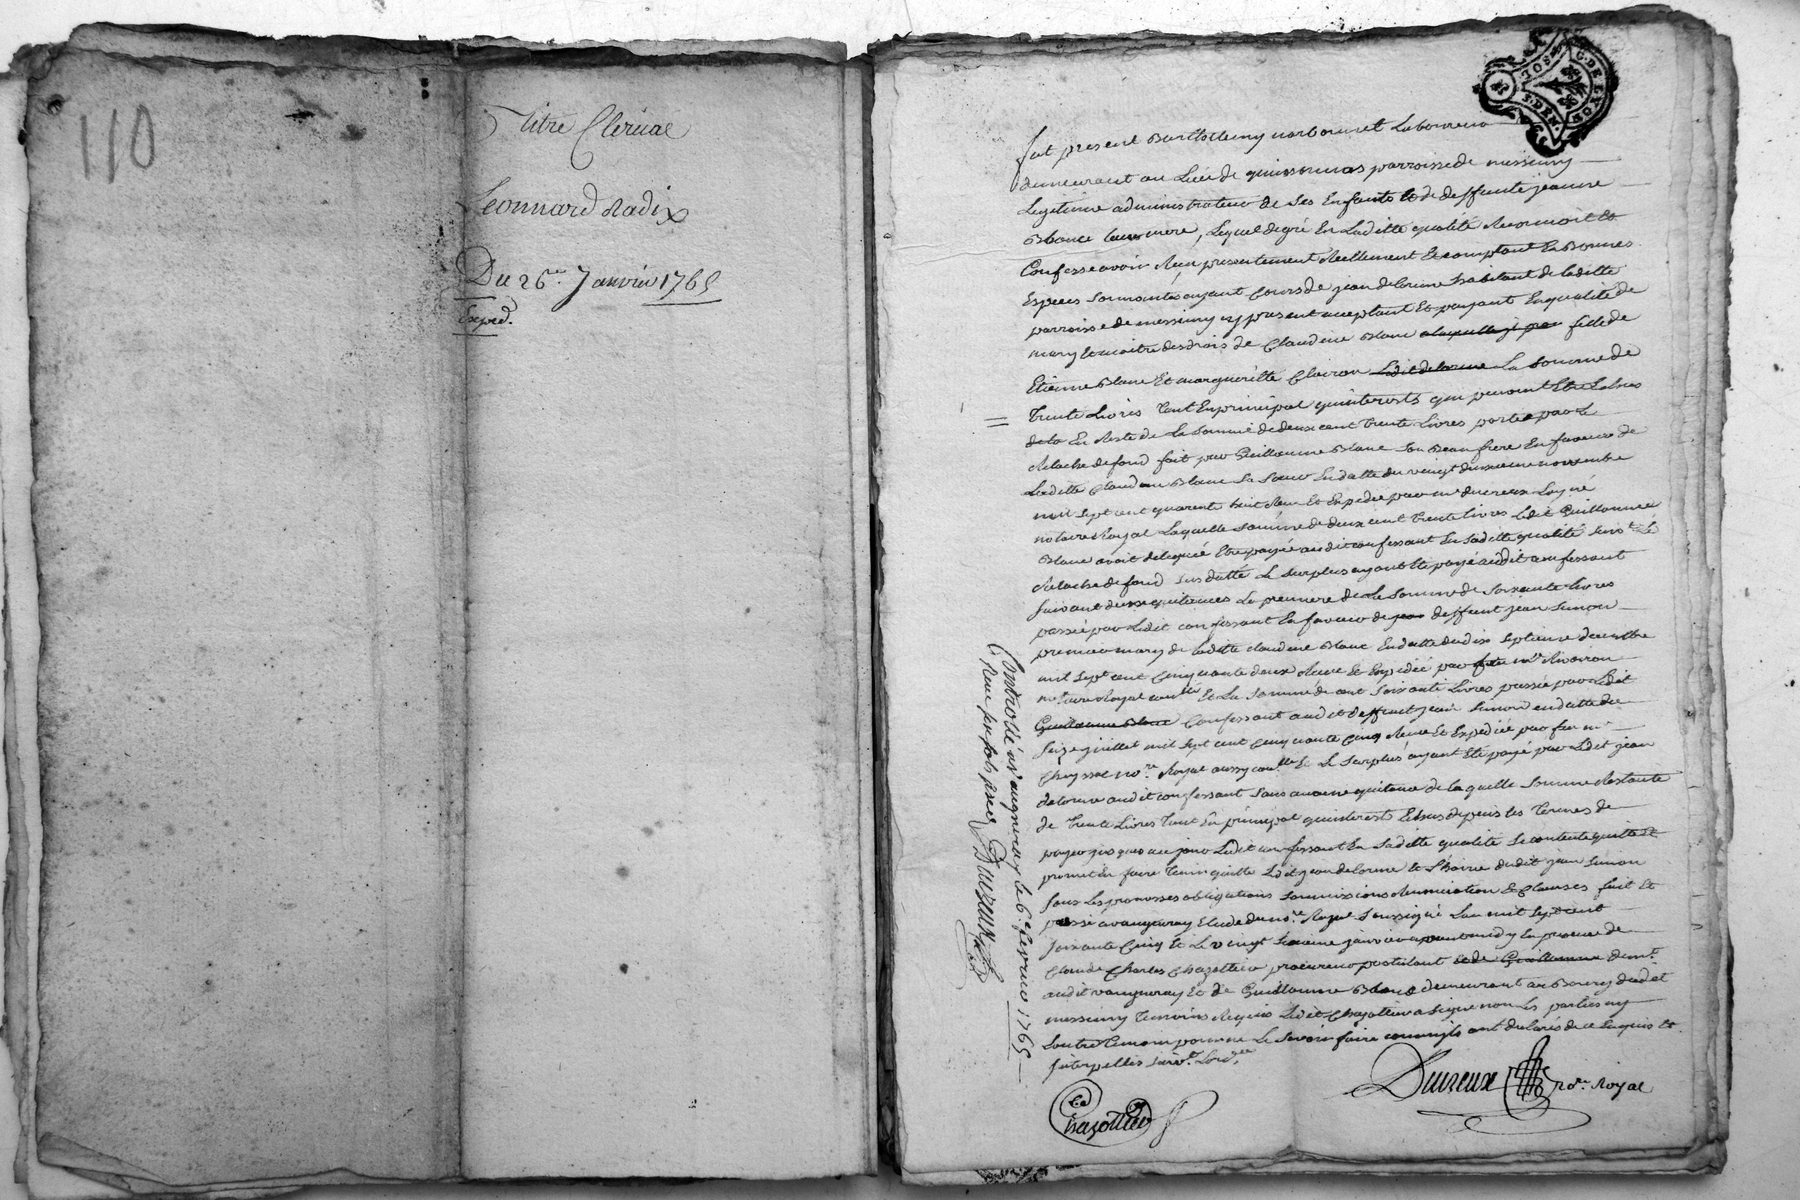 110
Titre Clerical
Leonnard Radix
Du 26e. Janvier 1765
Exped.
G. DE LYON
2. DEN.
fut present Barthelemy narbonnet Laboureur
demeurant au Lieu de quinsonnas parroisse de messimy
Legitime administrateur de ses Enfants et de deffunte jeanne
Blanc leur mere, Lequel degré En Laditte qualité
Confesse avoir Reçu presentement Réellement et comptant En Bonnes
Especes sonnantes ayant cours de jean delorme habitant de laditte
parroisse de messimy icy present acceptant Et payant En qualité de
mary Et maitre des droits de Claudine Blanc fille de
Etienne Blanc Et margueritte Clairon Ledit delorme La somme de
Trente Livres tant En principal qu'interests qui peuvent Etre
En Reste de La somme de deux cent trente Livres portée par Le
Relache de fond fait par Guillaume Blanc son Beau frere En faveur de
Laditte Claudine Blanc sa soeur En datte du vingt deuxieme novembre
mil sept cent quarente huit Reçu Et Expedié par me ducreux
notaire Royal Laquelle somme de deux cent trente livres Ledit Guillaume
Blanc avoit deleguée Etre payée audit confessant En saditte qualité
Relache de fond susdatté Le surplus ayant Eté payé audit confessant
suivant deux quitances La premiere de La somme de soixante livres
passée par Ledit confessant En faveur de deffunt jean simon
premier mary de laditte claudine Blanc En datte du dix septieme decembre
mil sept cent cinquante deux Reçue Et Expediée par me
notaire Royal Et La somme de cent soixante Livres passée par Ledit
Guillaume Blanc Confessant audit deffunt jean simon en datte du
seize juillet mil sept cent cinquante cinq Reçue Et Expediée par feu me
nore. Royal aussy Et Le surplus ayant Eté payé par Ledit jean
delorme audit confessant sans aucune quitance de la quelle somme Restante
de Trente Livres tant En principal qu'interests Echus depuis les Termes de
payer jusques au jour Ledit confessant En saditte qualité se contente quitte et
promet En faire tenir quitte Ledit jean delorme Et l'hoirie dudit jean simon
sous Les promesses obligations soumissions Renonciation & Clauses fait Et
passé à vaugneray Etude du nore. Royal soussigné L'an mil sept cent
soixante cinq Et Le vingt janvier En presence de
Claude Charles Chazottier procureur postulant demt.
audit vaugneray Et de Guillaume Blanc demeurant au Bourg dudit
messimy Temoins Requis Ledit Chazottier a signé non Les parties ny
L'autre temoin pour ne Le sçavoir faire comme ils ont declaré de ce Enquis Et
interpellés
Controllé à vaugneray le 6e. fevrier 1765
Ducreux
Chazottier
Ducreux nore. Royal